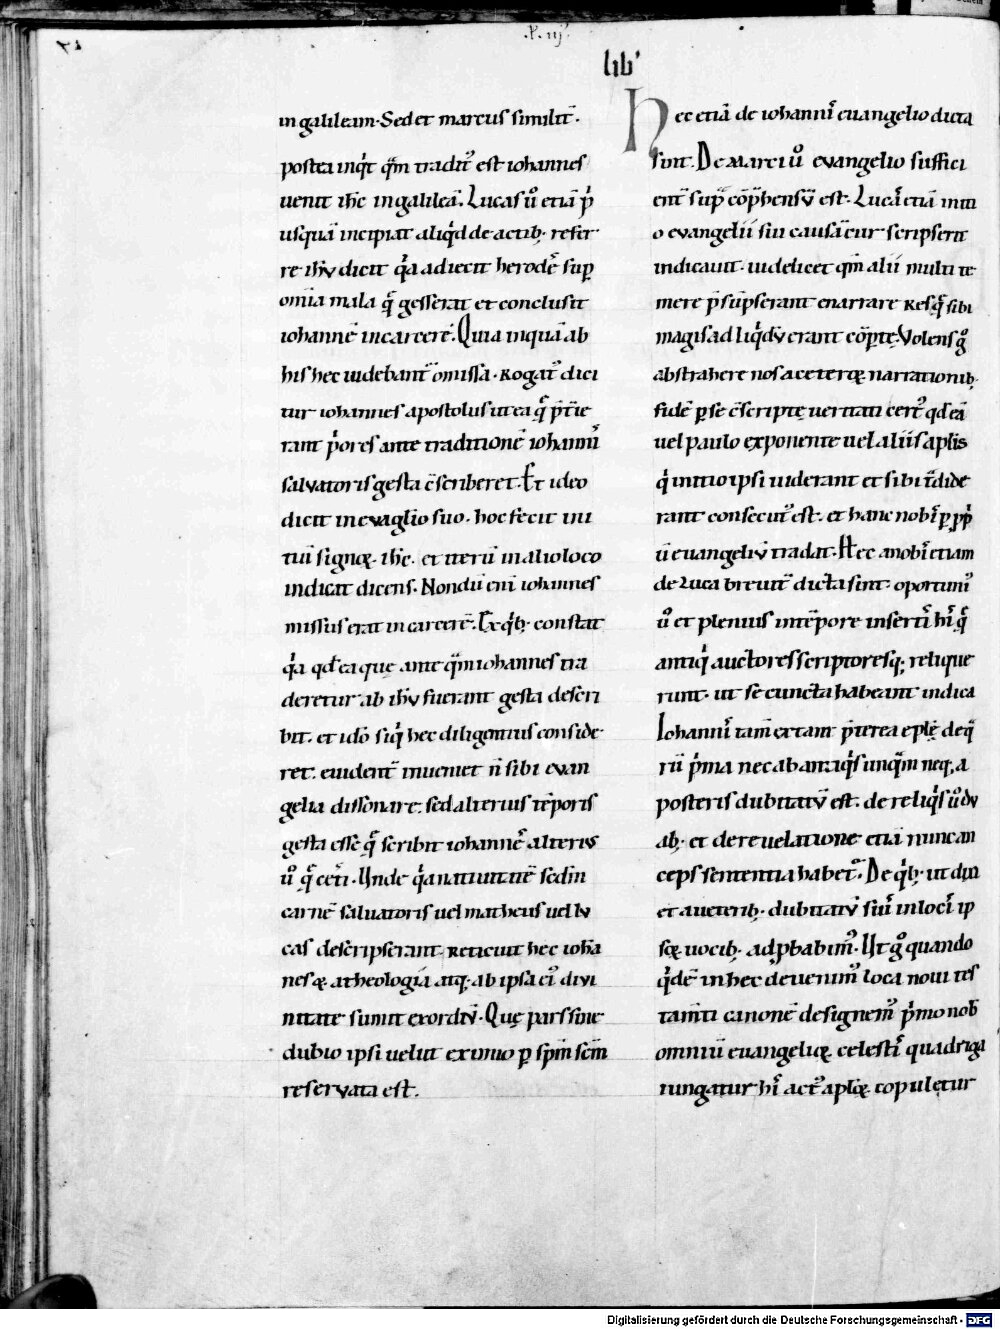 lib'
in galileam. Sed et marcus similit̄.
postea inq̇t q̄m tradit᷒ est iohannes
uenit ih̄c in galileā. Lucas u̇o etiā p̄
usquā incipiat aliq̇d de actib; refer
re ih̄u dicit q̇a adiecit herodē sup
omīa mala q̄ gesserat et conclusit
iohannē in carcerē. Quia inquā ab
his hec uidebant᷒ omissa. Rogat᷒ dici
tur iohannes apostolus ut ea q̄ p̄t̄ie
rant p̓ores ante traditionē iohannī
salvatoris gesta c̄scriberet. Et ideo
dicit in evāglio suo. hoc fecit ini
tiū signoꝝ ih̄c. et iterū in alio loco
indicat dicens. Nondū enī iohannes
missus erat in carcerē. Ex q̇b; constat
q̇a qd̄ ea quę ante q̄m iohannes tra
deretur ab ih̄u fuerant gesta descri
bit. et idō siq̇ hec diligentius conside
ret. euident̄ inueniet n̄ sibi evan
gelia dissonare. sed alterius tēporis
gesta esse q̄ scribit iohannē alterius
u̇o q̄ cet̄i. Unde q̇a natiuitatē sedm
carnē saluatoris uel matheus uel lu
cas descripserant. Reticuit hec ioha
nes ꝫ a theologia atq; ab ipsa ei᷒ divi
nitate sumit exordiū. Quę pars sine
dubio ipsi uelut eximio ꝑ sp̄m sc̄m
reservata est.
Hec etiā de iohannī euangelio dicta
sint. De Marci u̇o evangelio suffici
ent᷒ sup̄ cōp̄hensū est. Lucā etiā initi
o evangelii sui causā cur scripserit
indicauit. uidelicet q̄m alii multi te
mere p̄sūpserant enarrare Res q̄ sibi
magis ad liq̇dū erant cōp̄te. Volens g̊
abstrahere nos a ceteroꝝ narrationib;
fidē ꝑ se c̄scripte ueritati cert᷒ qd̄ eā
uel paulo exponente uel aliis aplis
q̇ initio ipsi uiderant et sibi t̄dide
rant consecut᷒ est. et hanc nobī ꝑ ꝓp̓
ū euangeliū tradat. Hec a nobī etiam
de luca breuit̄ dicta sint. oportuni᷒
u̇o et plenius in tēpore insertī hī q̄
antiq̇ auctores scriptoresq; relique
runt. ut se cuncta habeant indica
Iohannī tam̄ extant p̄terea eplę de q̄
rū p̓ma nec ab antiq̇s unq̄m neq; a
posteris dubitatū est. de reliq̇s u̇o du
ab; et de reuelatione etiā nunc an
ceps sententia habet᷒. De q̇b; ut diu
et a ueterib; dubitatū sit in locī ip
soꝝ uocib; adꝓbabim᷒. Ut g̊ quando
q̇dē in hec deuenim᷒ loca noui tes
tam̄ti canonē designem᷒ p̓mo nob
omniū euangelioꝝ celestī quadriga
iungatur hī act᷒ aploꝝ copuletur
Digitalisierung gefördert durch die Deutsche Forschungsgemeinschaft - DFG